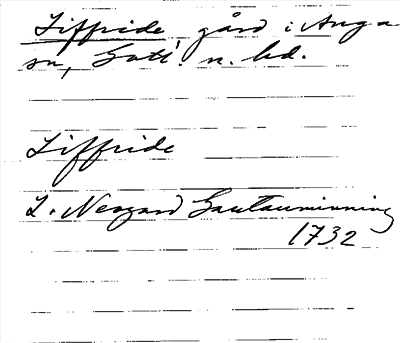 Liffride gård i Anga
sn, Gotl. n. hd.
Liffride
L. Neogard Gautauminning
1732